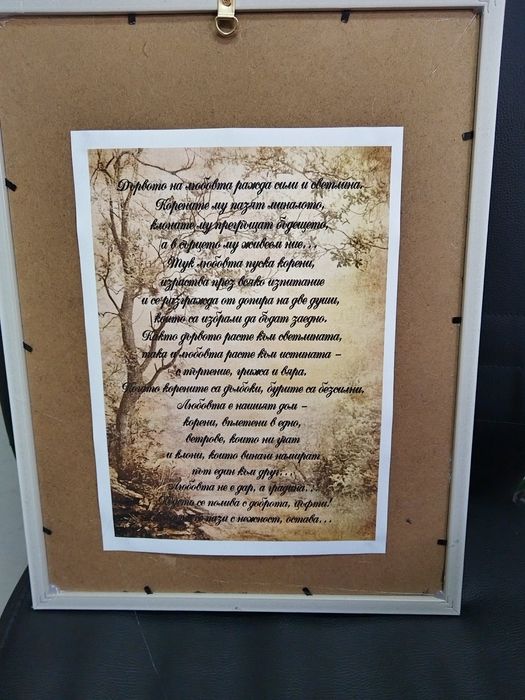 Дървото на любовта ражда сили и светлина.
Корените му пазят миналото,
клоните му прегръщат бъдещето,
а в сърцето му живеем ние...
Тук любовта пуска корени,
израства през всяко изпитание
и се разгражда от допира на две души,
които са избрали да бъдат заедно.
Както дървото расте към светлината,
така и любовта расте към истината –
с търпение, грижа и вяра.
Когато корените са дълбоки, бурите са безсилни.
Любовта е нашият дом –
корени, вплетени в едно,
ветрове, които ни учат
и клони, които винаги намират
път един към друг...
Любовта не е дар, а градина...
се полива с доброта, цъфти!
пази с нежност, остава...